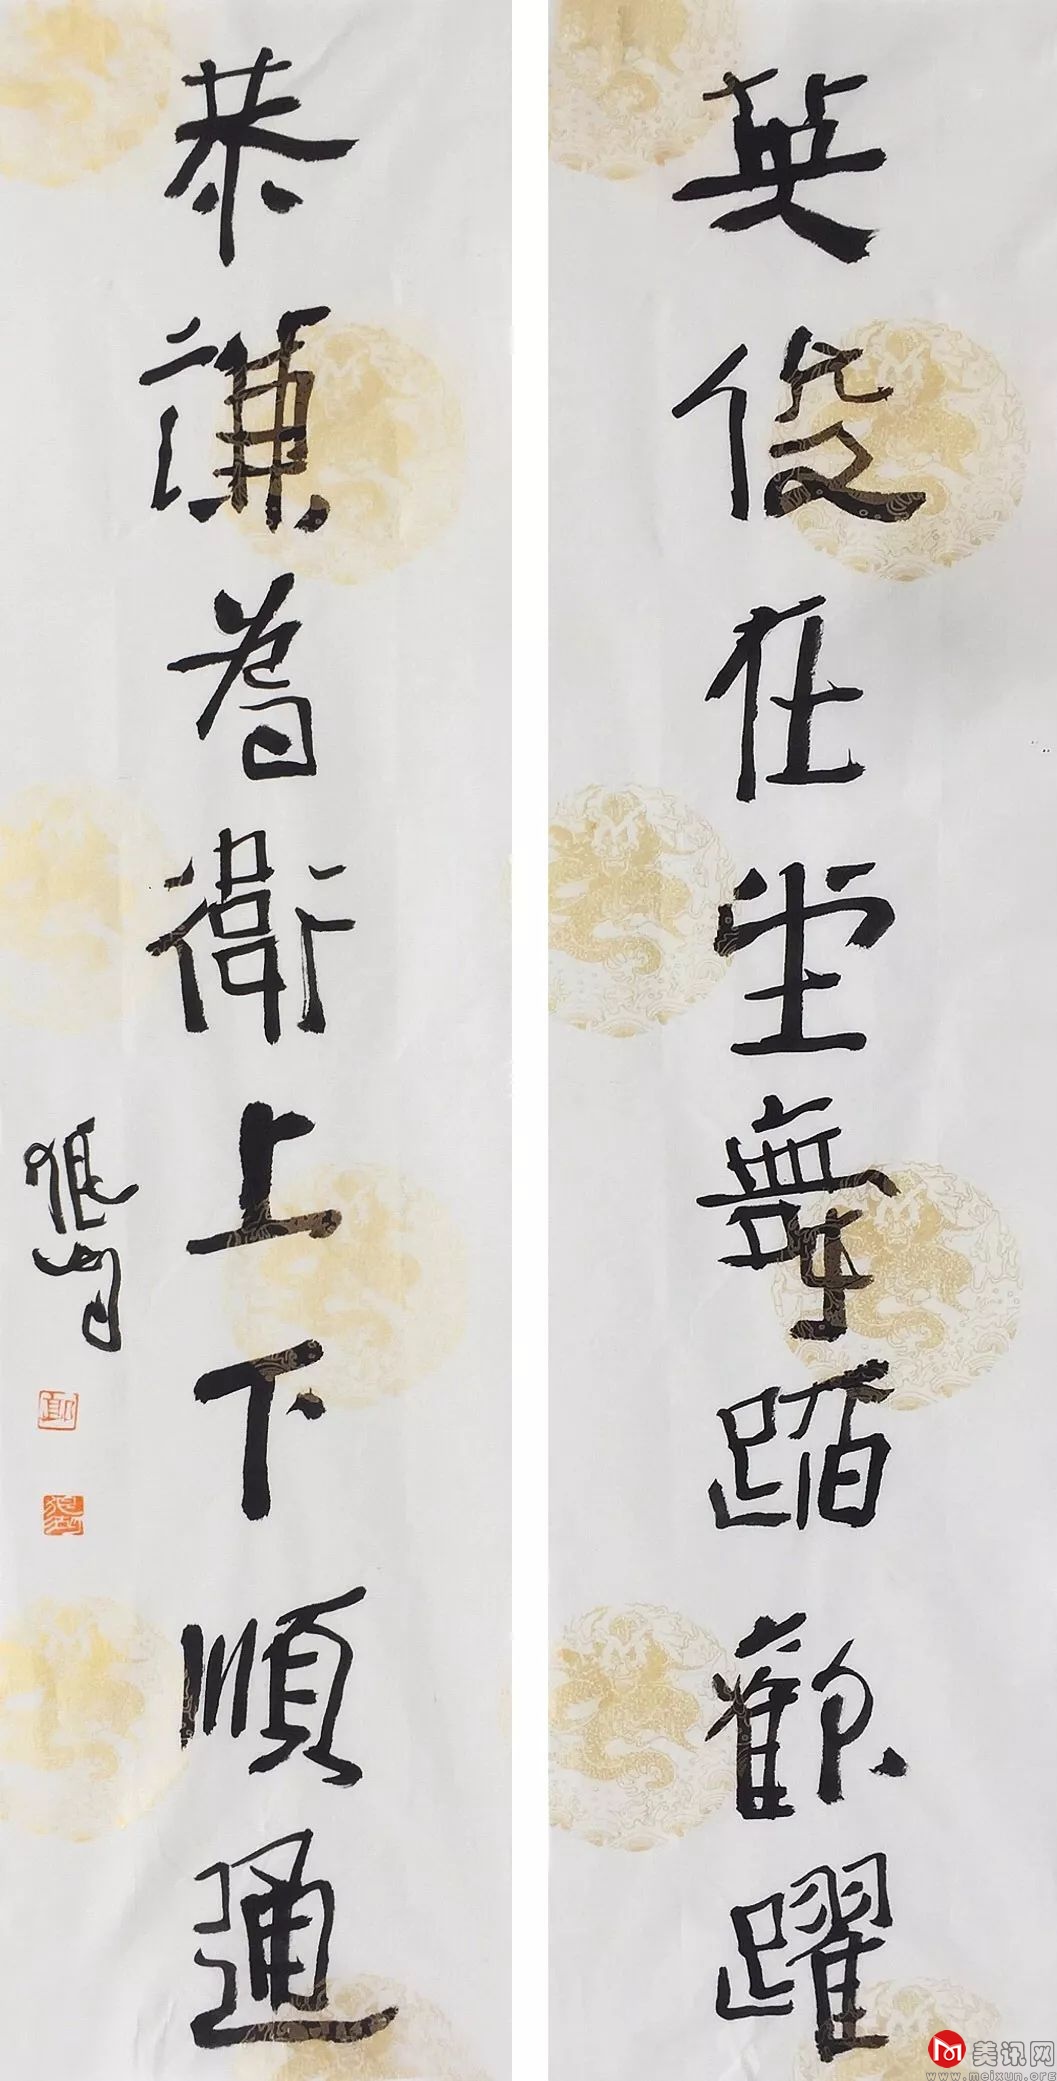 英俊在堂舞蹈歡躍
恭謙為衛上下順通
美讯网
www.meixun.org